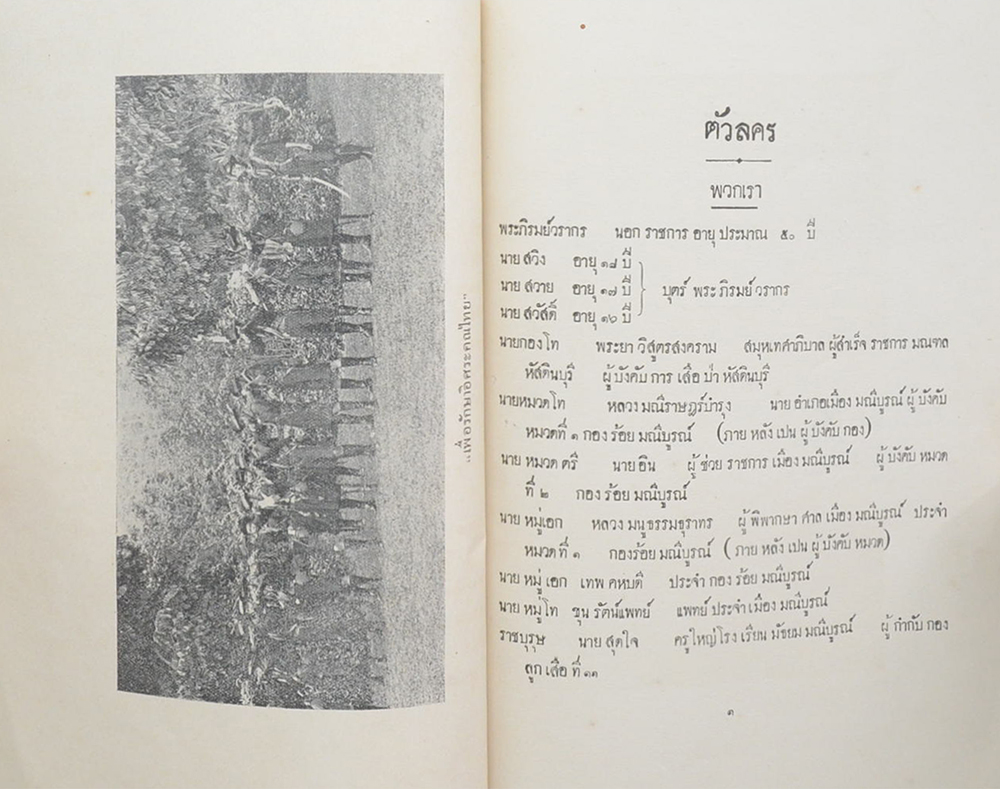 "เพื่อรักษาอิศระคณไทย"
ตัวลคร
พวกเรา
พระภิรมย์วรากร นอก ราชการ อายุ ประมาณ ๕๐ ปี
นาย สวิง อายุ ๑๘ ปี
นาย สวาย อายุ ๑๗ ปี
บุตร์ พระ ภิรมย์ วรากร
นาย สวัสดิ์ อายุ ๑๖ ปี
นายกองโท พระยา วิสูตรสงคราม สมุหเทศาภิบาล ผู้สำเร็จ ราชการ มณฑล
หัสดินบุรี ผู้ บังคับ การ เสือ ป่า หัสดินบุรี
นายหมวดโท หลวง มณีราษฎร์บำรุง นาย อำเภอเมือง มณีบูรณ์ ผู้ บังคับ
หมวดที่ ๑ กอง ร้อย มณีบูรณ์ (ภาย หลัง เปน ผู้ บังคับ กอง)
นาย หมวด ตรี นาย อิน ผู้ ช่วย ราชการ เมือง มณีบูรณ์ ผู้ บังคับ หมวด
ที่ ๒ กอง ร้อย มณีบูรณ์
นาย หมู่เอก หลวง มนูธรรมธุราทร ผู้ พิพากษา ศาล เมือง มณีบูรณ์ ประจำ
หมวด ที่ ๑ กองร้อย มณีบูรณ์ ( ภาย หลัง เปน ผู้ บังคับ หมวด)
นาย หมู่ เอก เทพ คหบดี ประจำ กอง ร้อย มณีบูรณ์
นาย หมู่ โท ขุน รัตน์แพทย์ แพทย์ ประจำ เมือง มณีบูรณ์
ราชบุรุษ นาย สุดใจ ครูใหญ่โรง เรียน มัธยม มณีบูรณ์ ผู้ กำกับ กอง
ลูก เสือ ที่ ๑๑
๑